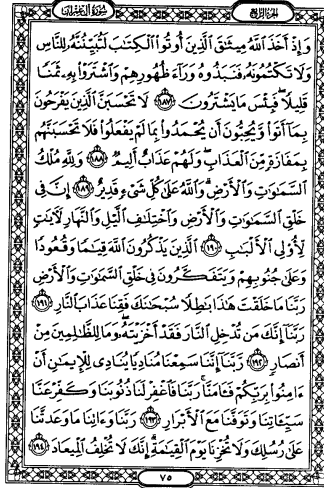 الجزء الرابع
سورة آل عمران
وَإِذْ أَخَذَ ٱللَّهُ مِيثَٰقَ ٱلَّذِينَ أُوتُوا۟ ٱلْكِتَٰبَ لَتُبَيِّنُنَّهُۥ لِلنَّاسِ
وَلَا تَكْتُمُونَهُۥ فَنَبَذُوهُ وَرَآءَ ظُهُورِهِمْ وَٱشْتَرَوْا۟ بِهِۦ ثَمَنًا
قَلِيلًا ۖ فَبِئْسَ مَا يَشْتَرُونَ ﴿١٨٧﴾ لَا تَحْسَبَنَّ ٱلَّذِينَ يَفْرَحُونَ
بِمَآ أَتَوا۟ وَّيُحِبُّونَ أَن يُحْمَدُوا۟ بِمَا لَمْ يَفْعَلُوا۟ فَلَا تَحْسَبَنَّهُم
بِمَفَازَةٍ مِّنَ ٱلْعَذَابِ ۖ وَلَهُمْ عَذَابٌ أَلِيمٌ ﴿١٨٨﴾ وَلِلَّهِ مُلْكُ
ٱلسَّمَٰوَٰتِ وَٱلْأَرْضِ ۗ وَٱللَّهُ عَلَىٰ كُلِّ شَىْءٍ قَدِيرٌ ﴿١٨٩﴾ إِنَّ فِى
خَلْقِ ٱلسَّمَٰوَٰتِ وَٱلْأَرْضِ وَٱخْتِلَٰفِ ٱلَّيْلِ وَٱلنَّهَارِ لَءَايَٰتٍ
لِّأُو۟لِى ٱلْأَلْبَٰبِ ﴿١٩٠﴾ ٱلَّذِينَ يَذْكُرُونَ ٱللَّهَ قِيَٰمًا وَقُعُودًا
وَعَلَىٰ جُنُوبِهِمْ وَيَتَفَكَّرُونَ فِى خَلْقِ ٱلسَّمَٰوَٰتِ وَٱلْأَرْضِ
رَبَّنَا مَا خَلَقْتَ هَٰذَا بَٰطِلًا سُبْحَٰنَكَ فَقِنَا عَذَابَ ٱلنَّارِ ﴿١٩١﴾
رَبَّنَآ إِنَّكَ مَن تُدْخِلِ ٱلنَّارَ فَقَدْ أَخْزَيْتَهُۥ ۖ وَمَا لِلظَّٰلِمِينَ مِنْ
أَنصَارٍ ﴿١٩٢﴾ رَّبَّنَآ إِنَّنَا سَمِعْنَا مُنَادِيًا يُنَادِى لِلْإِيمَٰنِ أَنْ
ءَامِنُوا۟ بِرَبِّكُمْ فَـَٔامَنَّا ۚ رَبَّنَا فَٱغْفِرْ لَنَا ذُنُوبَنَا وَكَفِّرْ عَنَّا
سَيِّـَٔاتِنَا وَتَوَفَّنَا مَعَ ٱلْأَبْرَارِ ﴿١٩٣﴾ رَبَّنَا وَءَاتِنَا مَا وَعَدتَّنَا
عَلَىٰ رُسُلِكَ وَلَا تُخْزِنَا يَوْمَ ٱلْقِيَٰمَةِ ۗ إِنَّكَ لَا تُخْلِفُ ٱلْمِيعَادَ ﴿١٩٤﴾
٧٥